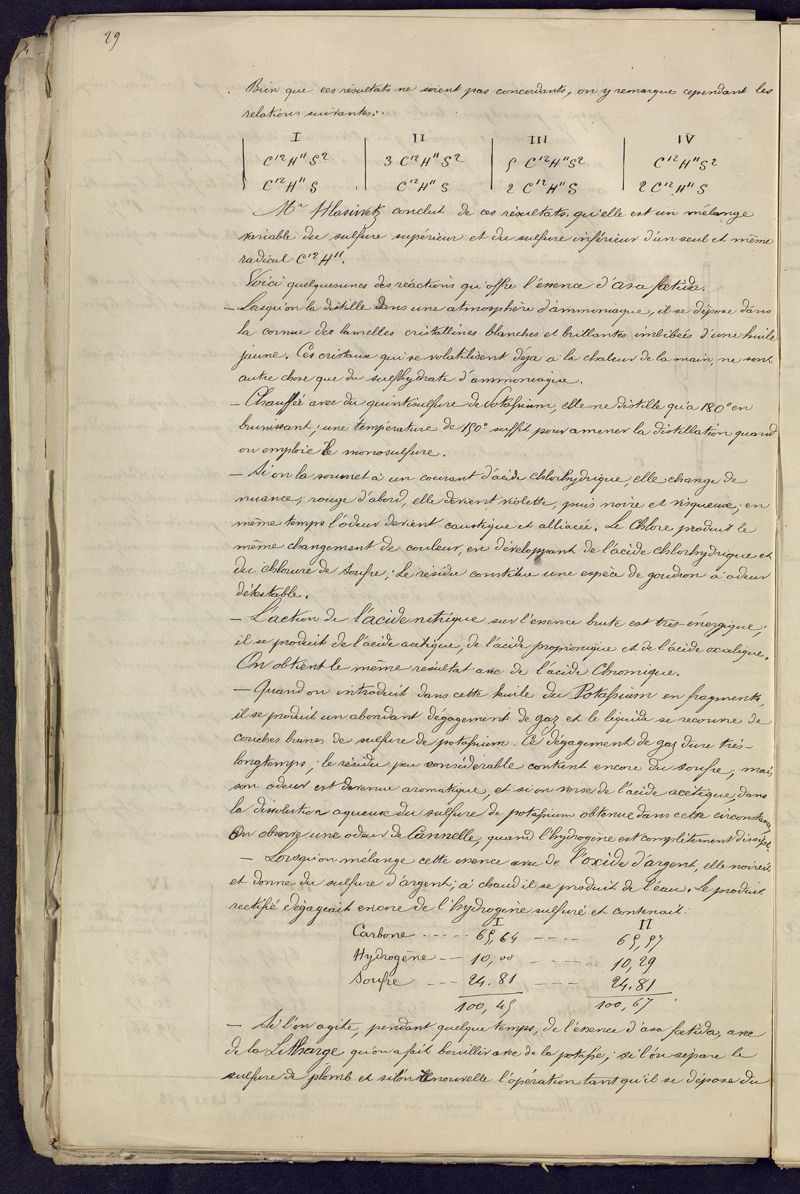 29
Bien que ces résultats ne soient pas concordants, on y remarque cependant les
relations suivantes:
I II III IV
C¹²H¹¹S² 3 C¹²H¹¹S² 5 C¹²H¹¹S² C¹²H¹¹S²
C¹²H¹¹S C¹²H¹¹S 2 C¹²H¹¹S 2 C¹²H¹¹S
Mr Hlasiwetz conclut de ces résultats, qu'elle est un mélange
variable du sulfure supérieur et du sulfure inférieur d'un seul et même
radical C¹²H¹¹.
Voici quelques unes des réactions qu'offre l'essence d'asa fœtida.
– Lorsqu'on la distille dans une atmosphère d'ammoniaque, il se dépose dans
la cornue des lamelles cristallines blanches et brillantes, imbibées d'une huile
jaune. Ces cristaux qui se volatilisent déja a la chaleur de la main, ne sont
autre chose que du sulfhydrate d'ammoniaque.
– Chauffée avec du quintisulfure de Potassium, elle ne distille qu'a 180° en
brunissant; une température de 150° suffit pour amener la distillation quand
on emploie le monosulfure.
– Si on la soumet à un courant d'acide chlorhydrique, elle change de
nuance; rouge d'abord, elle devient violette, puis noire et visqueuse; en
même temps l'odeur devient caustique et alliacée. Le Chlore produit le
même changement de couleur, en développant de l'acide chlorhydrique et
du chlorure de soufre; le résidu constitue une espèce de goudron a odeur
détestable.
– L'action de l'acide nitrique sur l'essence brute est très-énergique;
il se produit de l'acide acétique, de l'acide propionique et de l'acide oxalique.
On obtient le même résultat avec de l'acide Chromique.
– Quand on introduit dans cette huile du Potassium en fragments,
il se produit un abondant dégagement de gaz et le liquide se recouvre de
couches brunes de sulfure de potassium. Ce dégagement de gaz dure très-
longtemps; le résidu peu considérable contient encore du soufre; mais
son odeur est devenue aromatique, et si on verse de l'acide acétique, dans
la dissolution aqueuse du sulfure de potassium obtenue dans cette circonstance,
On observe une odeur de Cannelle, quand l'hydrogène est complètement dissipé.
– Lorsqu'on mélange cette essence avec de l'oxide d'argent, elle noircit
et donne du sulfure d'argent; à chaud il se produit de l'eau. Le produit
rectifié dégageait encore de l'hydrogène sulfuré et contenait:
I II
Carbone ----- 65,64 ---- 65,57
Hydrogène -- 10,00 ---- 10,29
Soufre --- 24.81 ---- 24.81
100,45 100,67.
– Si l'on agite, pendant quelque temps, de l'essence d'asa fœtida, avec
de la Litharge qu'on a fait bouillir avec de la potasse; si l'on sépare le
sulfure de plomb et si l'on renouvelle l'opération tant qu'il se dépose du